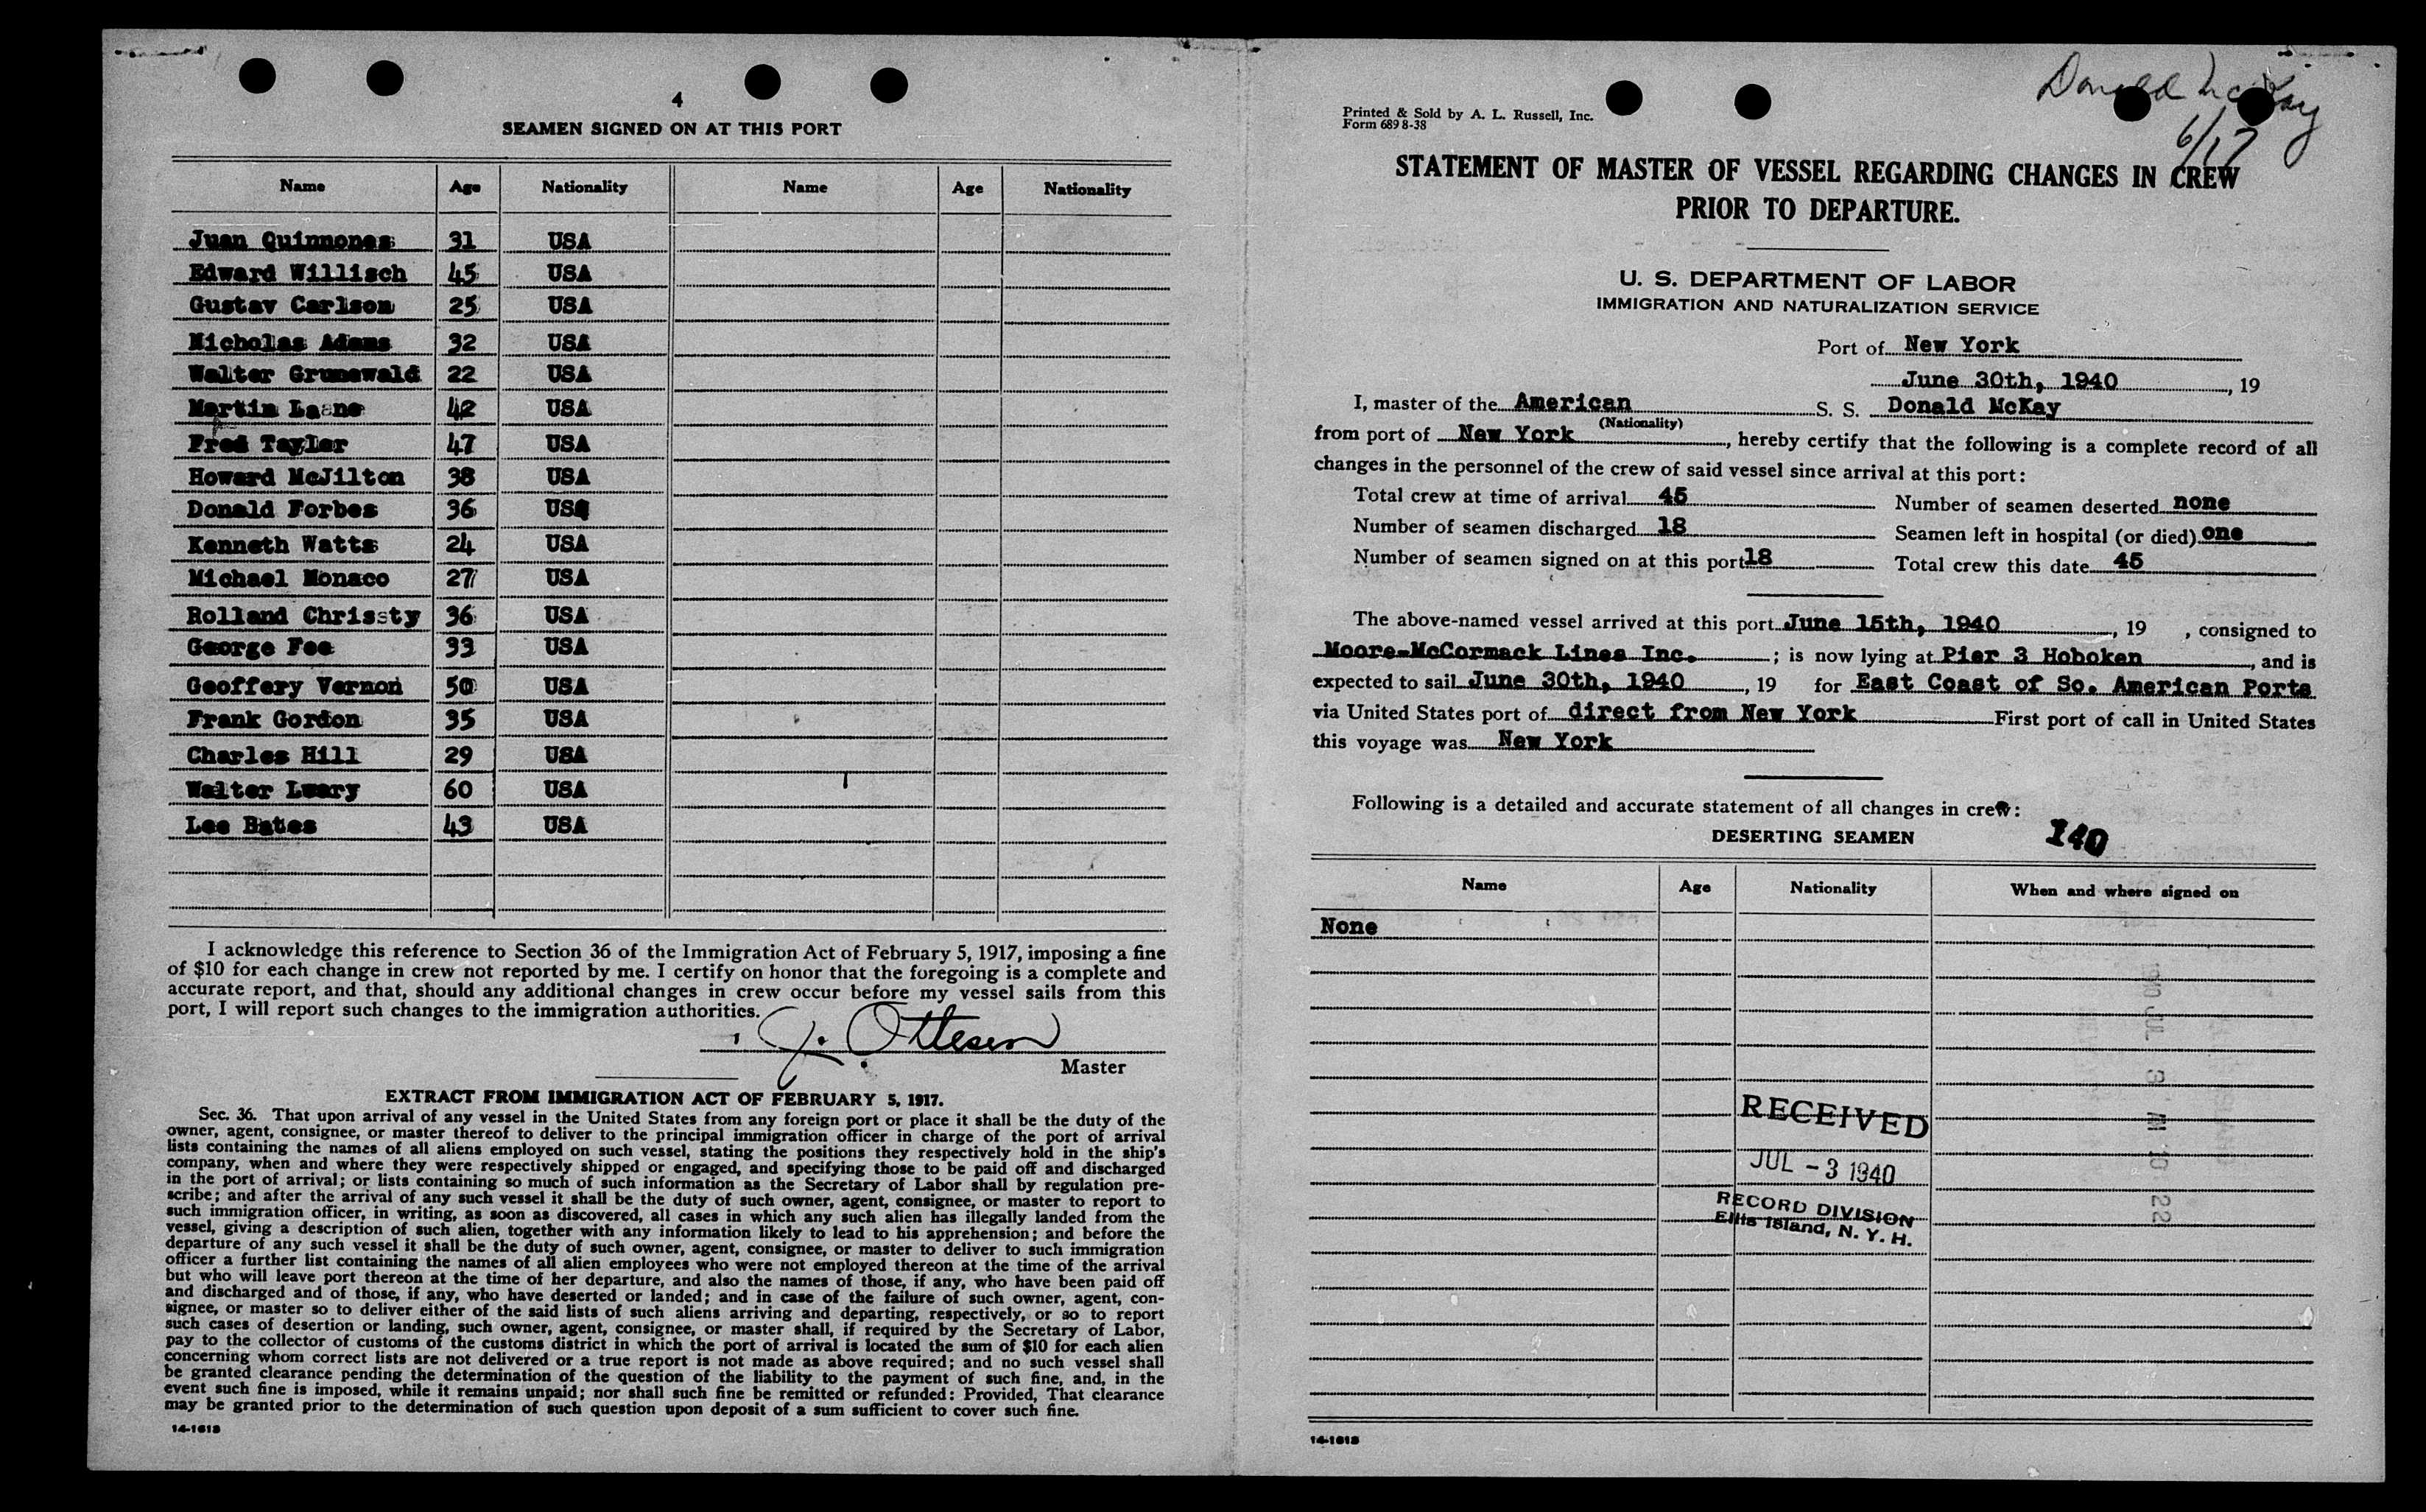 4
SEAMEN SIGNED ON AT THIS PORT
Name Age Nationality Name Age Nationality
Juan Quinnones 31 USA
Edward Willisch 45 USA
Gustav Carlson 25 USA
Nicholas Adams 32 USA
Walter Grunewald 22 USA
Martin Laane 42 USA
Fred Taylor 47 USA
Howard McJilton 38 USA
Donald Forbes 36 USA
Kenneth Watts 24 USA
Michael Monaco 27 USA
Rolland Chrissty 36 USA
George Fee 33 USA
Geoffery Vernon 50 USA
Frank Gordon 35 USA
Charles Hill 29 USA
Walter Lwary 60 USA
Lee Bates 43 USA
I acknowledge this reference to Section 36 of the Immigration Act of February 5, 1917, imposing a fine
of $10 for each change in crew not reported by me. I certify on honor that the foregoing is a complete and
accurate report, and that, should any additional changes in crew occur before my vessel sails from this
port, I will report such changes to the immigration authorities.
J. Ottesen
Master
EXTRACT FROM IMMIGRATION ACT OF FEBRUARY 5, 1917.
Sec. 36. That upon arrival of any vessel in the United States from any foreign port or place it shall be the duty of the
owner, agent, consignee, or master thereof to deliver to the principal immigration officer in charge of the port of arrival
lists containing the names of all aliens employed on such vessel, stating the positions they respectively hold in the ship's
company, when and where they were respectively shipped or engaged, and specifying those to be paid off and discharged
in the port of arrival; or lists containing so much of such information as the Secretary of Labor shall by regulation pre-
scribe; and after the arrival of any such vessel it shall be the duty of such owner, agent, consignee, or master to report to
such immigration officer, in writing, as soon as discovered, all cases in which any such alien has illegally landed from the
vessel, giving a description of such alien, together with any information likely to lead to his apprehension; and before the
departure of any such vessel it shall be the duty of such owner, agent, consignee, or master to deliver to such immigration
officer a further list containing the names of all alien employees who were not employed thereon at the time of the arrival
but who will leave port thereon at the time of her departure, and also the names of those, if any, who have been paid off
and discharged and of those, if any, who have deserted or landed; and in case of the failure of such owner, agent, con-
signee, or master so to deliver either of the said lists of such aliens arriving and departing, respectively, or so to report
such cases of desertion or landing, such owner, agent, consignee, or master shall, if required by the Secretary of Labor,
pay to the collector of customs of the customs district in which the port of arrival is located the sum of $10 for each alien
concerning whom correct lists are not delivered or a true report is not made as above required; and no such vessel shall
be granted clearance pending the determination of the question of the liability to the payment of such fine, and, in the
event such fine is imposed, while it remains unpaid; nor shall such fine be remitted or refunded: Provided, That clearance
may be granted prior to the determination of such question upon deposit of a sum sufficient to cover such fine.
14-1613
Donald McKay
6/17
Printed & Sold by A. L. Russell, Inc.
Form 689 8-38
STATEMENT OF MASTER OF VESSEL REGARDING CHANGES IN CREW
PRIOR TO DEPARTURE.
U. S. DEPARTMENT OF LABOR
IMMIGRATION AND NATURALIZATION SERVICE
Port of New York
June 30th, 1940, 19
I, master of the American S. S. Donald McKay
(Nationality)
from port of New York, hereby certify that the following is a complete record of all
changes in the personnel of the crew of said vessel since arrival at this port:
Total crew at time of arrival 45 Number of seamen deserted none
Number of seamen discharged 18 Seamen left in hospital (or died) one
Number of seamen signed on at this port 18 Total crew this date 45
The above-named vessel arrived at this port June 15th, 1940, 19 , consigned to
Moore-McCormack Lines Inc. ; is now lying at Pier 3 Hoboken, and is
expected to sail June 30th, 1940, 19 for East Coast of So. American Ports
via United States port of direct from New York First port of call in United States
this voyage was New York
Following is a detailed and accurate statement of all changes in crew:
DESERTING SEAMEN 140
Name Age Nationality When and where signed on
None
RECEIVED
JUL - 3 1940
RECORD DIVISION
Ellis Island, N. Y. H.
14-1613